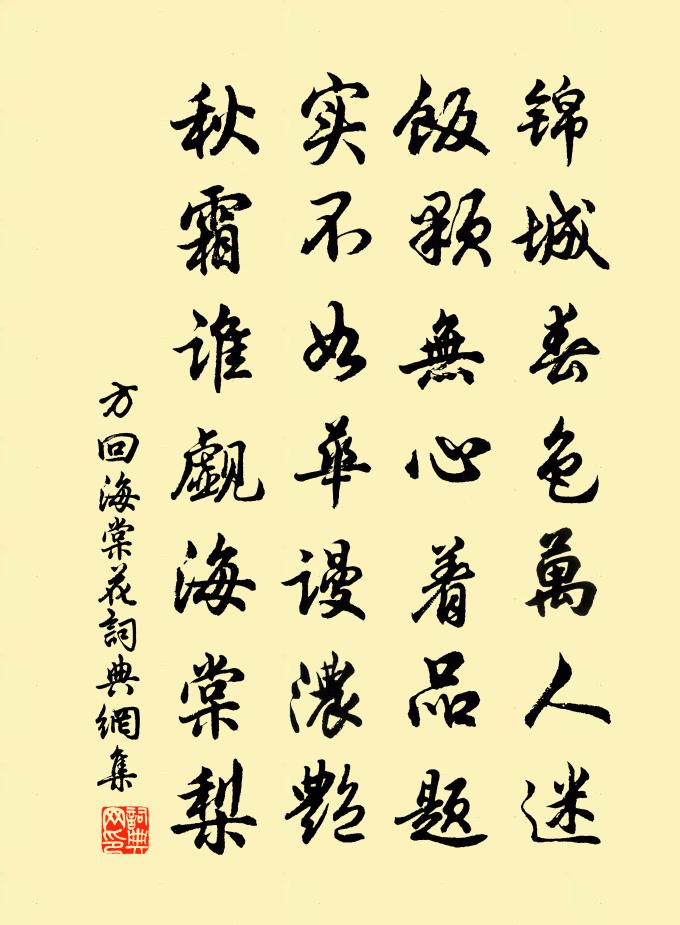 锦城春色萬人迷
飯顆無心着品題
实不如華謾濃艷
秋霜谁覷海棠梨
方回海棠花詞典網集
詞典网印